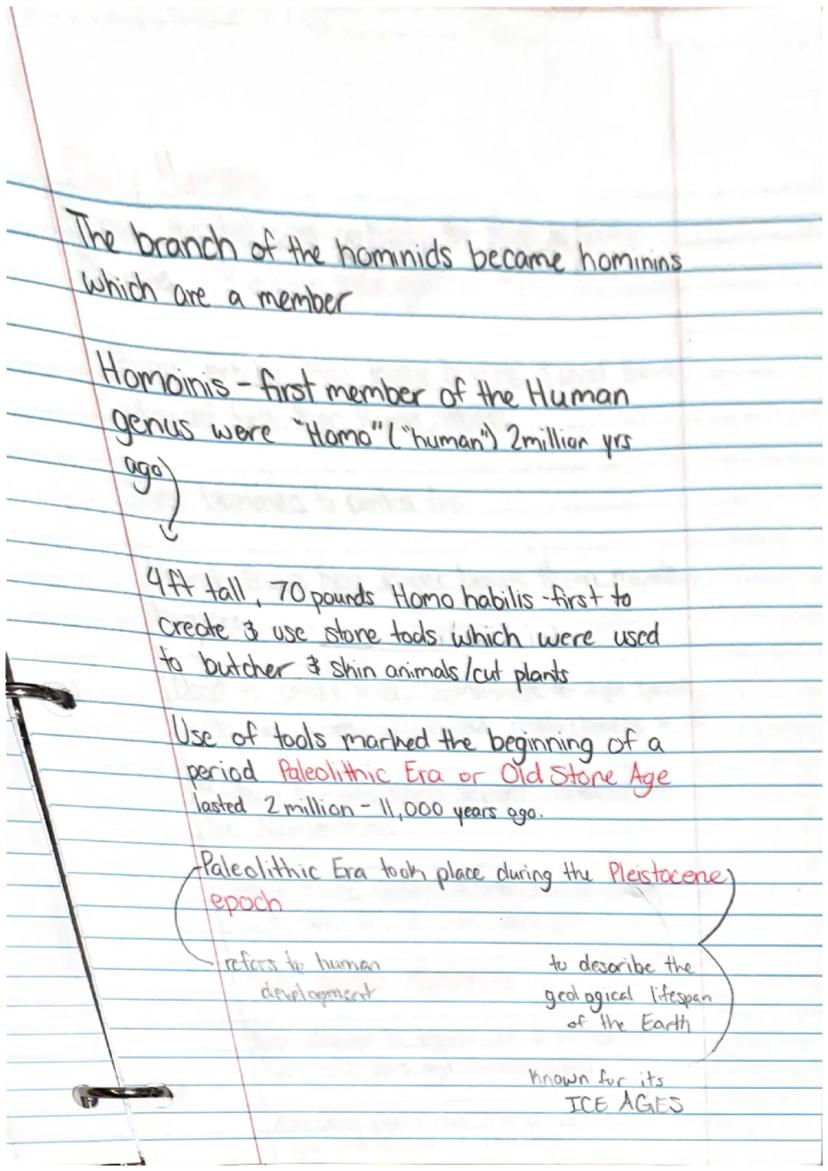 The branch of the homnids became hominins
which are a member
Homoinis - first member of the Human
genus were "Homo" ("human") 2million yrs
ago
4ft tall, 70 pounds Homo habilis - first to
create & use stone tools, which were used
to butcher & skin animals/cut plants
Use of tools marked the beginning of a
period Paleolithic Era or Old Stone Age
lasted 2 million - 11,000 years ago.
Paleolithic Era took place during the Pleistocene
epoch
refers to human
development
to describe the
geological lifespan
of the Earth
Known for its
ICE AGES